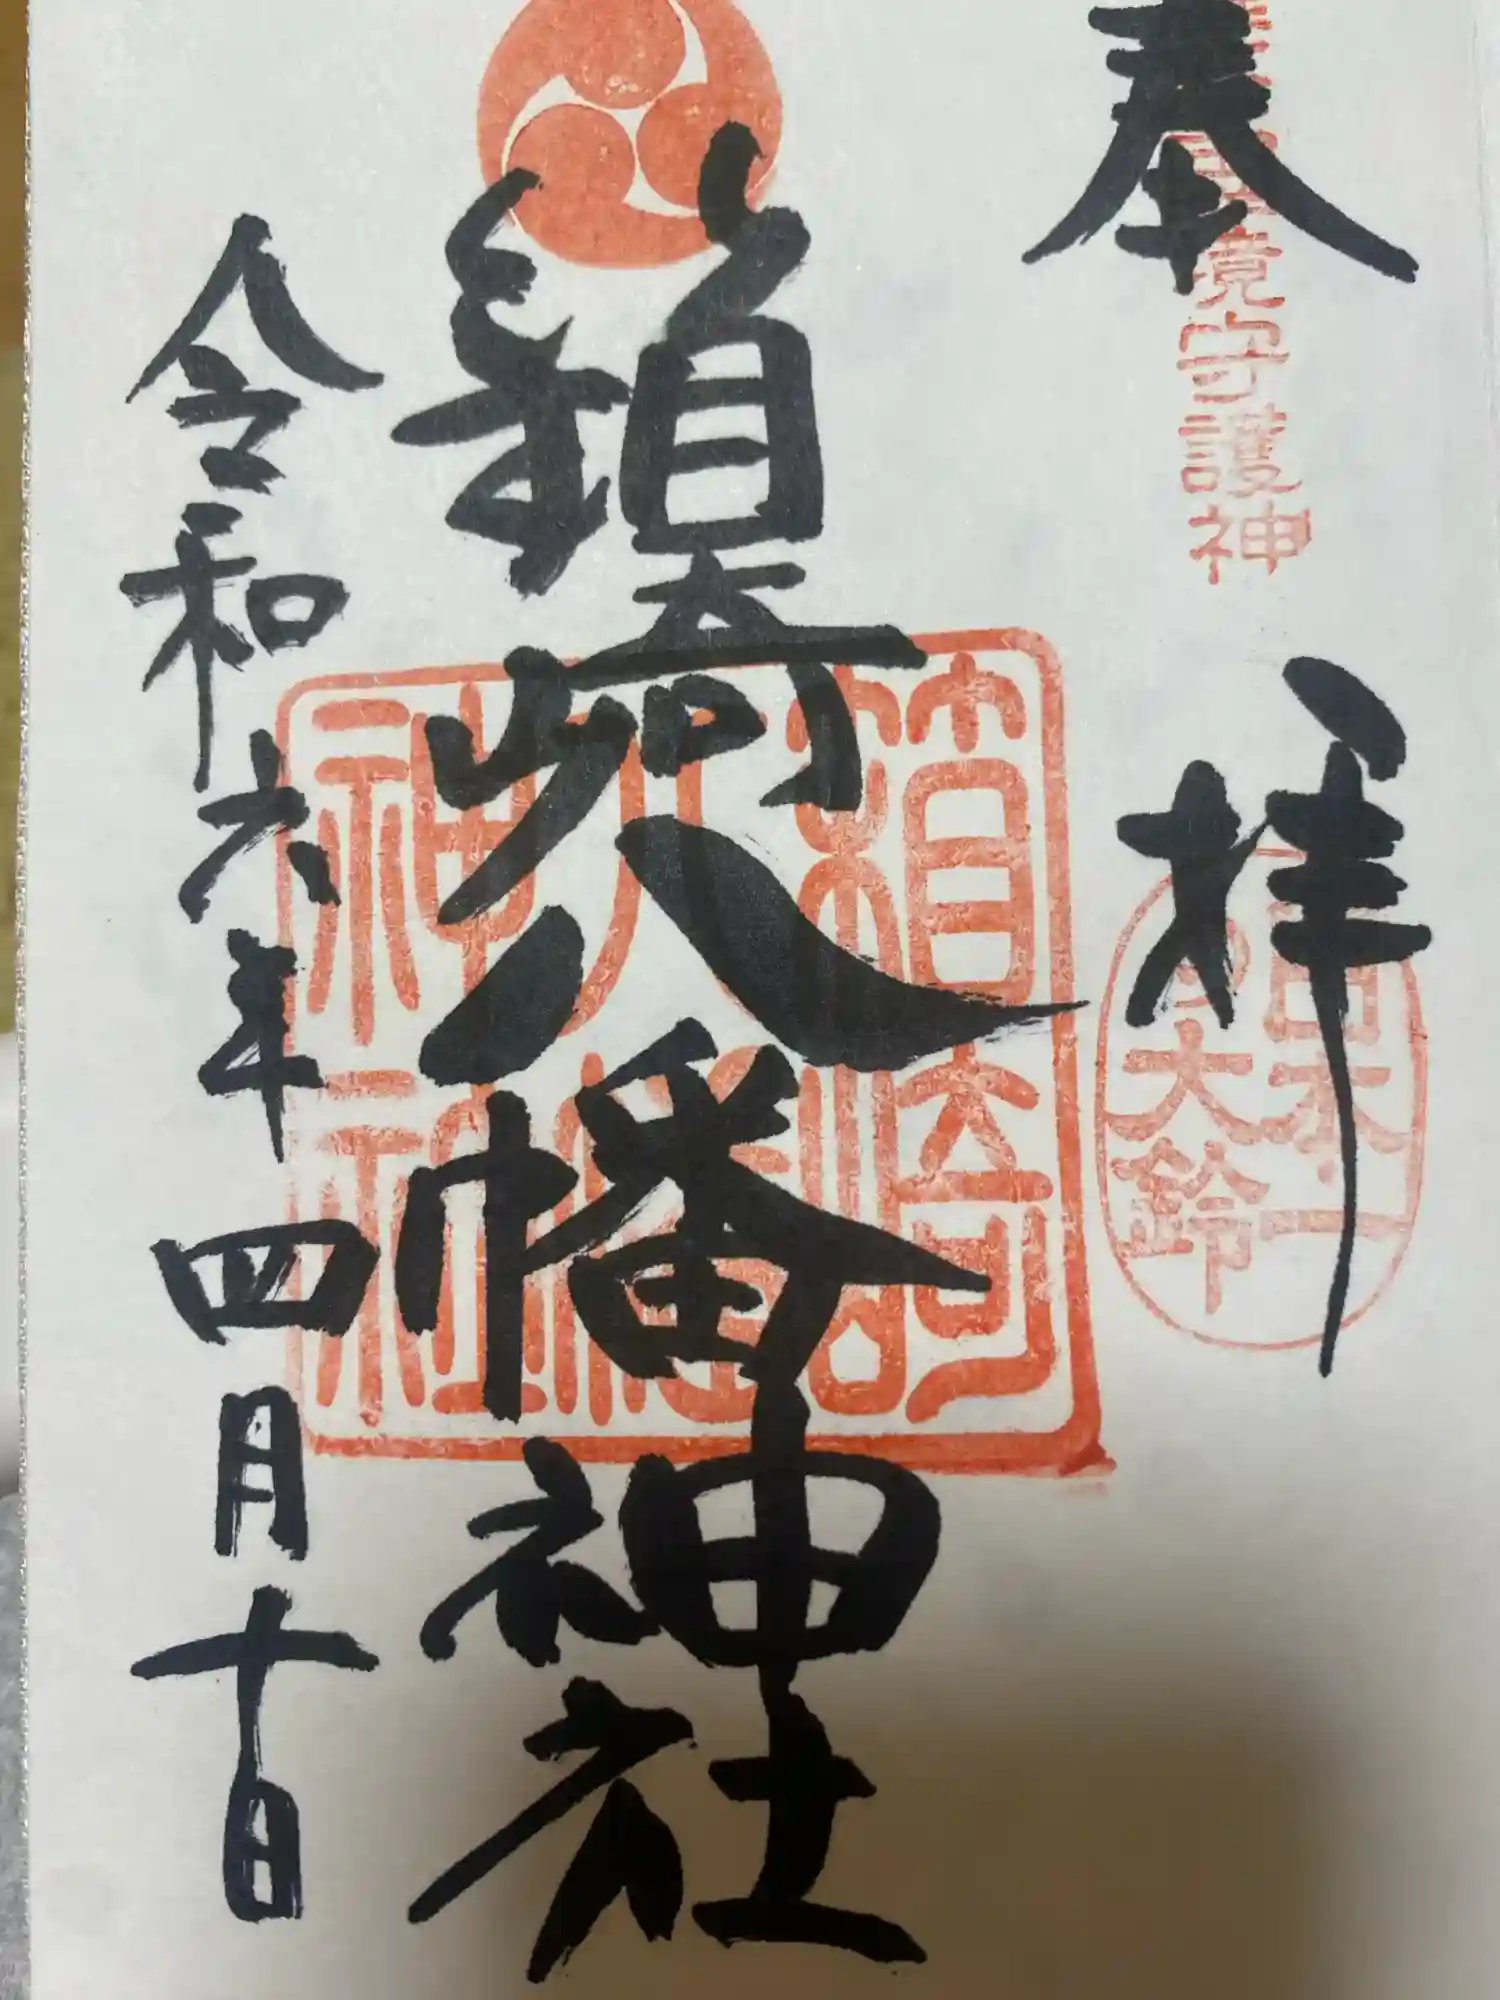 奉拝
境守護神
日本一
大鈴
箱崎八幡神社
箱崎
八幡
神社
令和六年四月十日